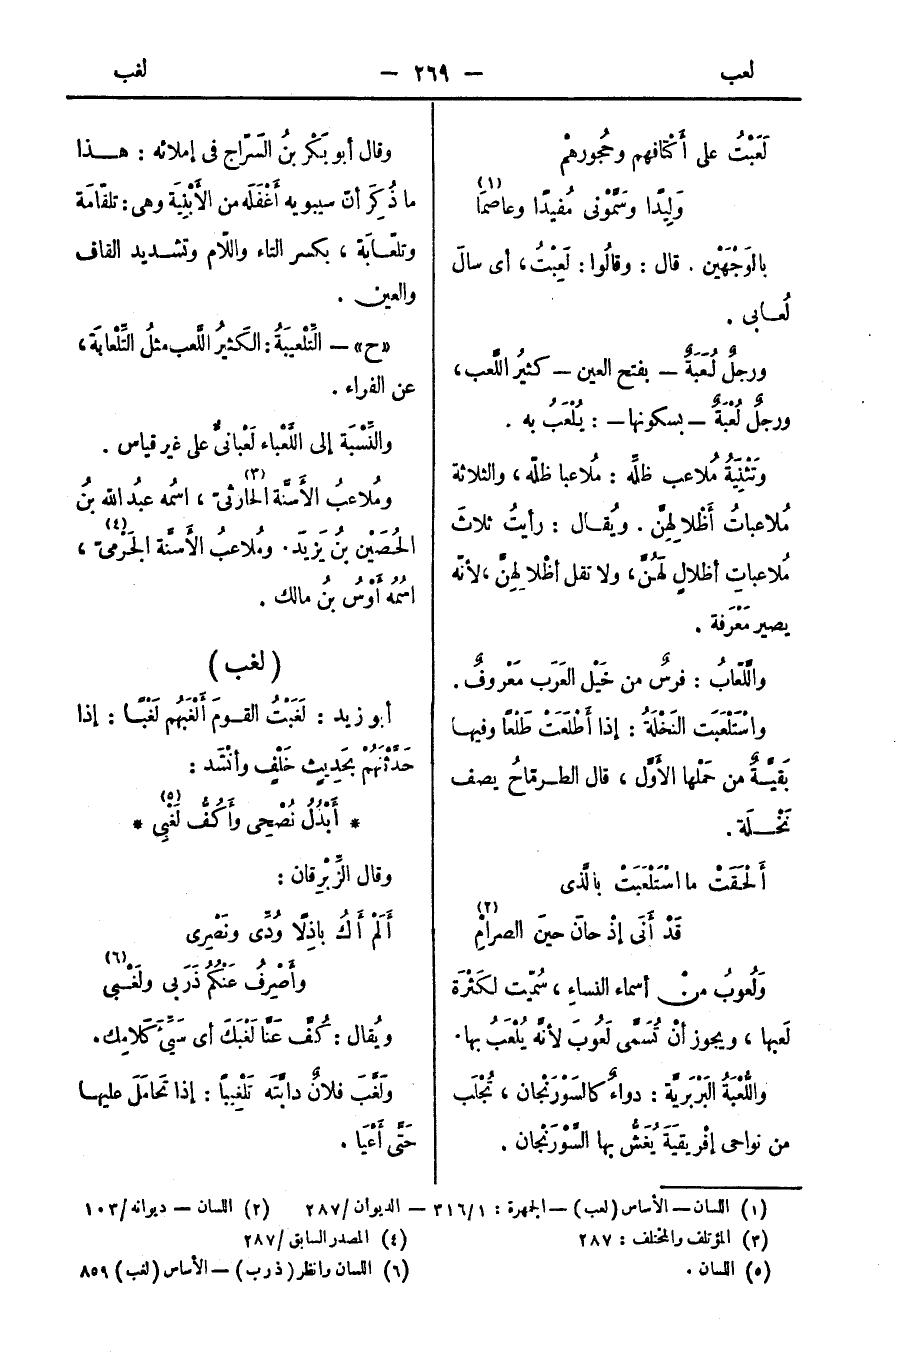 لعب — ٢٦٩ — لغب
لَعَبْتُ على أَكْتافهم وحُجورهمْ
وَلِيدًا وسَمَّوْنى مُفيدًا وعاصمَا (١)
بالوَجْهَيْن . قال : وقالُوا : لَعِبْتُ ، أى سالَ
لُعـابى .
ورجلٌ لُعَبَةٌ — بفتح العين — كثيرُ اللَّعب ،
ورجلٌ لُعْبَةٌ — بسكونها — : يُلْعَبُ به .
وتَثْنِيَةُ مُلاعب ظلِّه : مُلاعبا ظلّه ، والثلاثة
مُلاعباتُ أَظْلالهنَّ . ويُقـال : رأيتُ ثلاثَ
مُلاعباتِ أظلالٍ لَهُنَّ ، ولا تقل أظْلالهنَّ ، لأنّه
يصير مَعْرَفة .
واللَّعّابُ : فرسٌ من خَيْل العَرَب مَعْروفٌ .
واسْتَلْعَبَت النَّخْلَةُ : إذا أَطْلَعَتْ طَلْعًا وفيهـا
بَقيَّةٌ من حَمْلها الأوَّل ، قال الطـرِمّاحُ يصف
نَخْـلَة .
أَلْحَقَتْ ما اسْتَلْعَبَتْ بالَّذى
قَدْ أَنَى إذْ حانَ حينَ الصرامِْ (٢)
ولَعُوبُ من أسماء النساءِ ، سُمِّيَت لكَثْرَة
لَعبها ، ويجوز أنْ تُسَمَّى لَعُوبَ لأنَّه يُلْعَبُ بها .
واللُّعْبَةُ البَرْبَريَّة : دواءٌ كالسَوْرَنْجان ، تُجْلَب
من نواحى إفْريقيَةَ يُغَشُّ بها السَّوْرَنْجان .
وقال أبو بَكْر بنُ السَّرّاج فى إملائه : هـذا
ما ذُكِرَ أنّ سيبويه أَغْفَلَه من الأَبْنِيَة وهى : تلقّامَة
وتلعّـابَة ، بكسر التاء واللّام وتشـديد القاف
والعين .
«ح» — التِّلْعيبَةُ : الكَثيرُ اللَّعب مثلُ التِّلْعابَة ،
عن الفراء .
والنِّسْبَة إلى اللَّعْباء لَعْبانىٌّ على غير قياس .
ومُلاعبُ الأسنَّة الحَارثىّ (٣) ، اسمُه عبدُ الله بنُ
الحُصَيْن بنُ يَزيدَ . ومُلاعبُ الأسنَّة الجَرْمىّ (٤) ،
اسمُهُ أَوْسُ بنُ مالك .
( لغب )
أبو زيد : لَغَبْتُ القـومَ أَلْغَبُهم لَغْبًا : إذا
حَدَّثْتَهُمْ بحَديثٍ خَلْفٍ وأنْشَد :
* أَبْذُلُ نُصْحِى وأَكُفُّ لَغْبِى * (٥)
وقال الزِّبْرِقان :
أَلَمْ أَكُ باذِلًا وُدِّى ونَصْرِى
وأَصْرِفُ عَنْكُمُ ذَرَبى ولَغْـبى (٦)
ويُقال : كُفَّ عَنَّا لَغْبَكَ أى سَيِّئَ كَلامِك .
ولَغَّبَ فلانٌ دابتَه تَلْغيبًا : إذا تَحامَلَ عليهـا
حتَّى أَعْيَا .
(١) اللسان — الأساس ( لعب ) — الجمهرة : ٣١٦/١ — الديوان /٢٨٧ (٢) اللسان — ديوانه /١٠٣
(٣) المؤتلف والمختلف : ٢٨٧ (٤) المصدر السابق /٢٨٧
(٥) اللسان . (٦) اللسان وانظر ( ذرب ) — الأساس ( لغب ) ٨٥٩